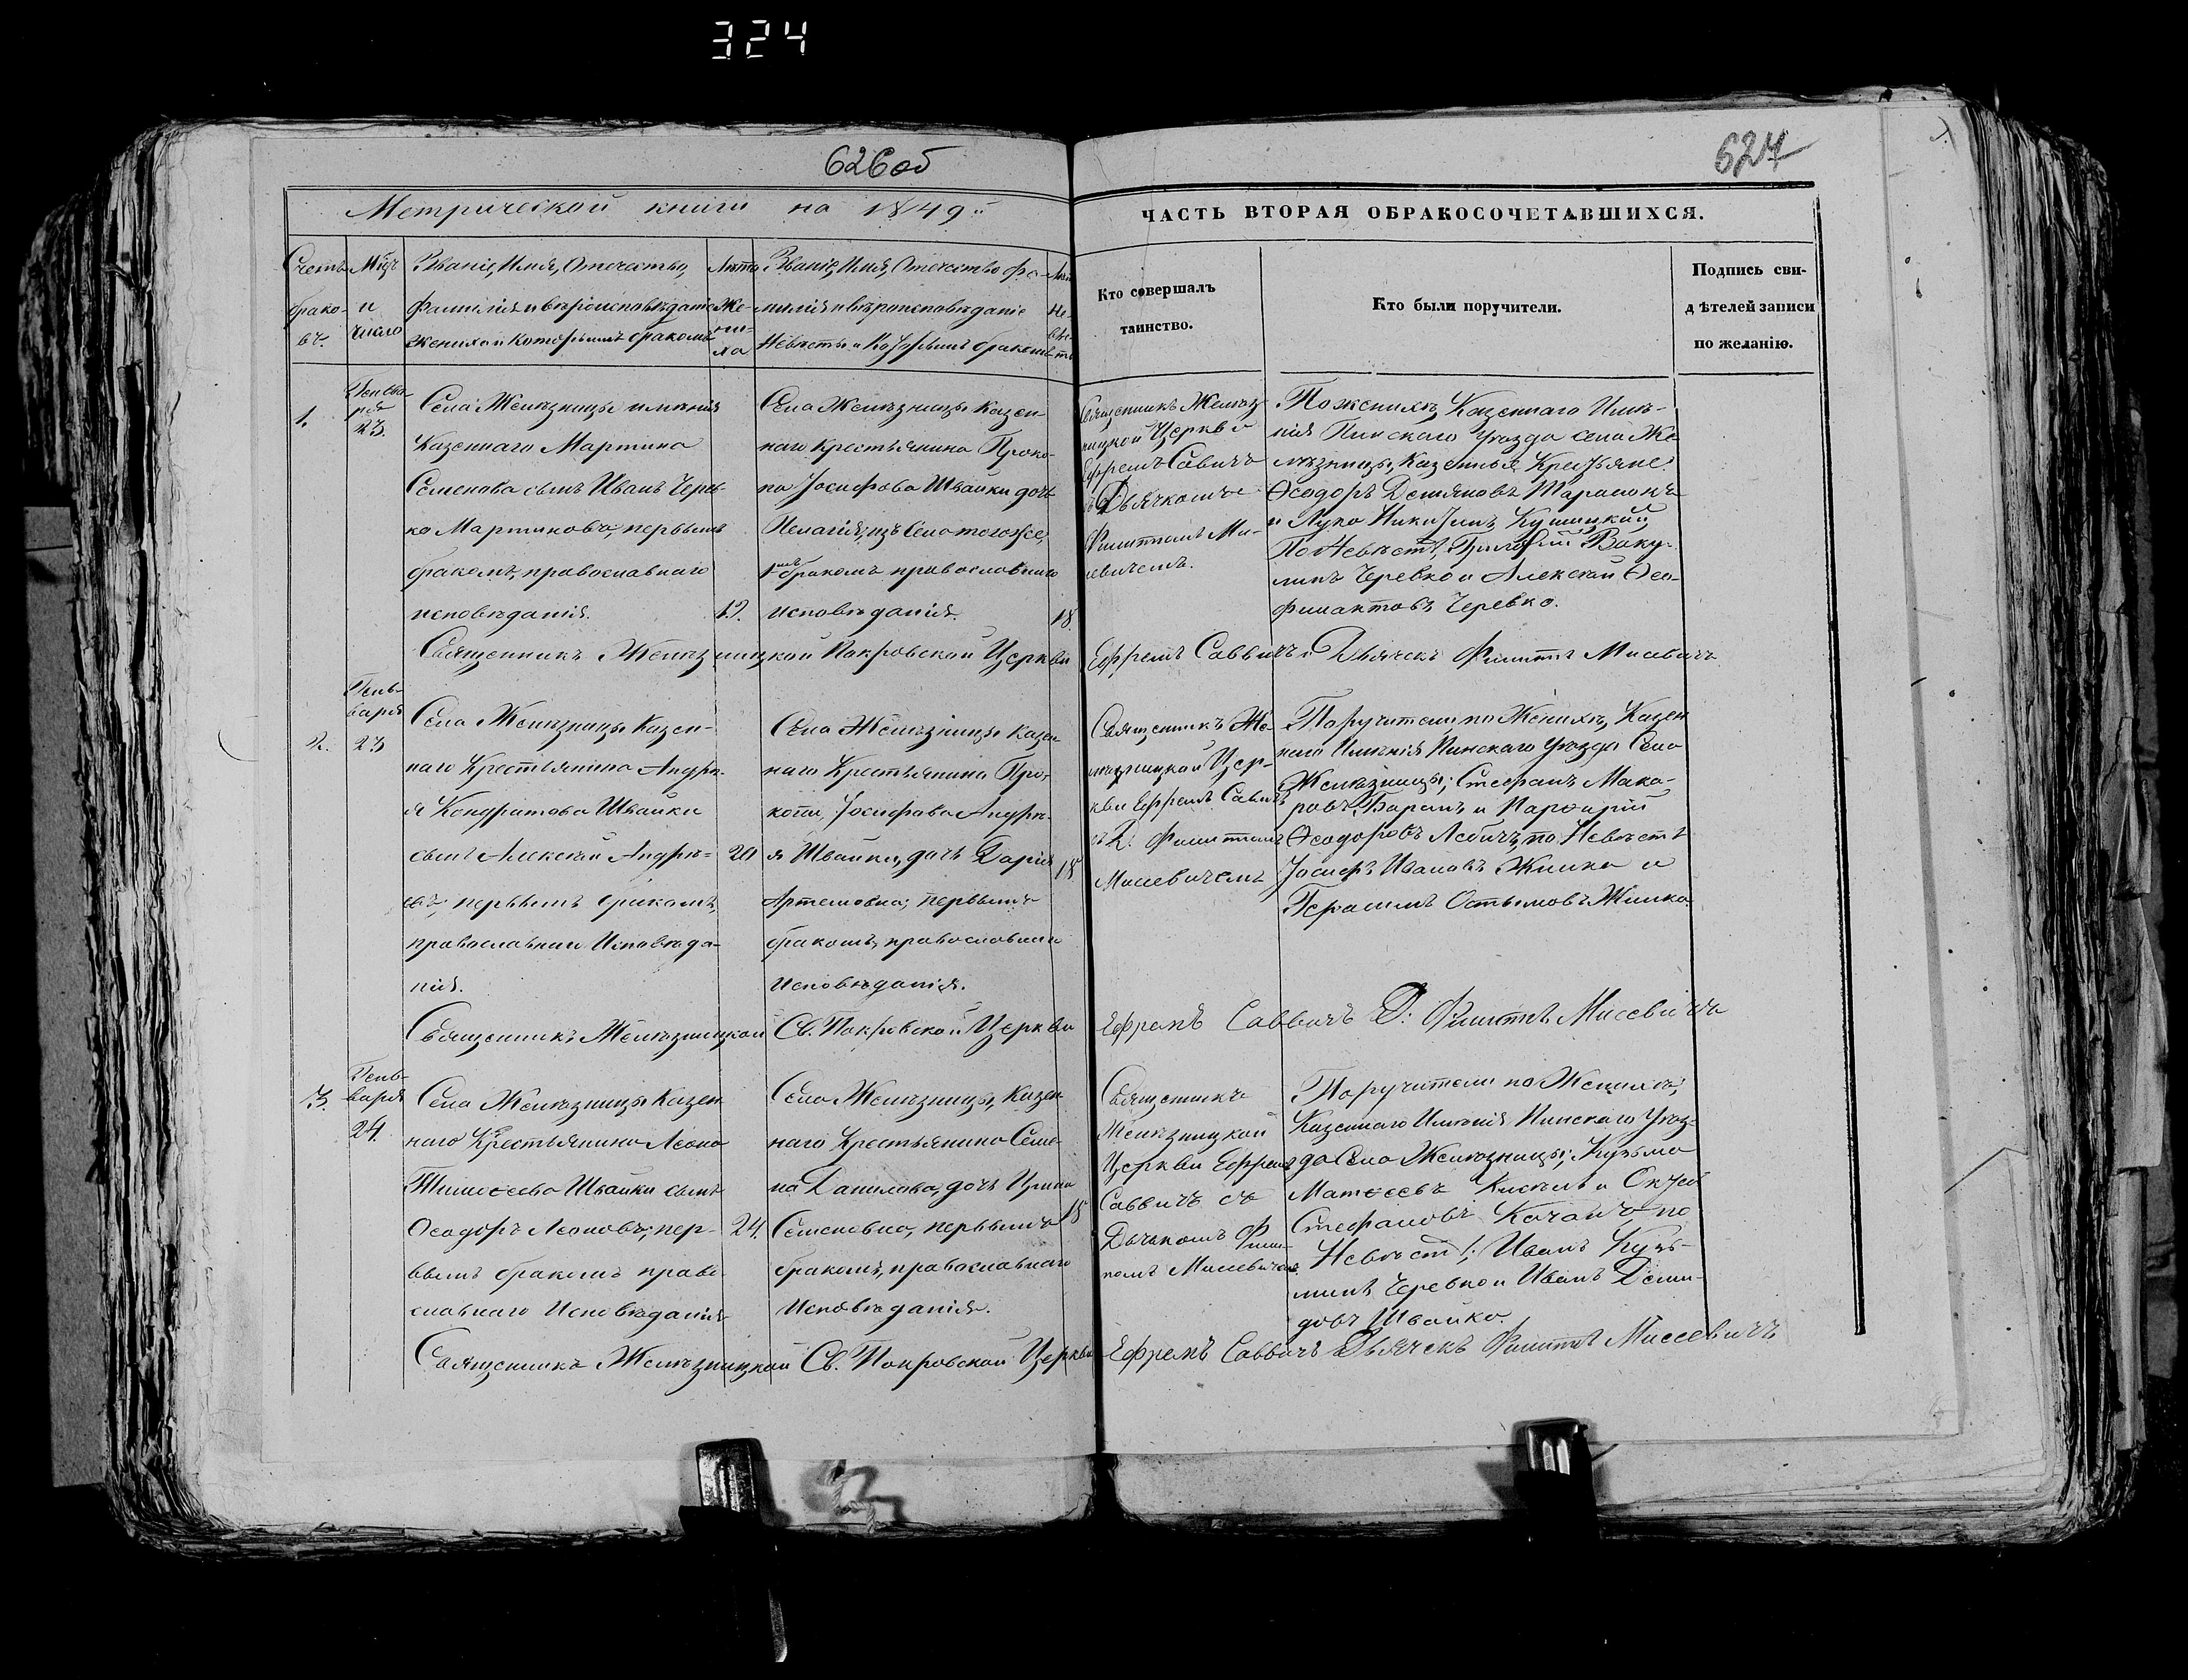 324
626об
627
Метрической книги на 1849й
ЧАСТЬ ВТОРАЯ О БРАКОСОЧЕТАВШИХСЯ.
Счетъ
брако-
въ.
Мцъ
и
число
Званіе, Имя, Отечество,
Фамилія и вѣроисповѣданіе
жениха и которымъ бракомъ
Лѣта
Же-
ни-
ха
Званіе, Имя, Отечество Фа-
милія и вѣроисповѣданіе
Невѣсты и которымъ бракомъ
Не-
вѣ-
сты
Кто совершалъ
таинство.
Кто были поручители.
Подпись сви-
дѣтелей записи
по желанію.
1.
Генва-
ря
23.
Села Желѣзницы имѣнія
Казеннаго Мартина
Семенова сынъ Иванъ Черев-
ко Мартиновъ, первымъ
бракомъ, православнаго
исповѣданія.
19.
Села Желѣзницы Казен-
наго Крестьянина Проко-
па Іосифова Швайки дочь
Пелагія, изъ Села тогоже,
1мъ бракомъ православнаго
исповѣданія.
18.
Священникъ Желѣз
ницкой Церкви
Ефремъ Савичъ
съ Дьячкомъ
Филиппомъ Ми-
севичемъ.
По женихѣ, Казеннаго Имѣ-
нія Пинскаго Уѣзда села Же
лѣзницы, Казенные Крестьяне:
Ѳеодоръ Демяновъ
и Лука Никитинъ
По Невѣстѣ,
Черевко и Алексѣй Ѳео-
филактовъ Черевко.
Священникъ Желѣзницкой Покровской Церкви Ефремъ Саввичъ и Дьячекъ Филиппъ Мисевичъ
2.
Генв-
варя
23
Села Желѣзницы Казен-
наго Крестьянина Андре-
я Кондратова Швайки
сынъ Алексѣй Андре-
евъ, первымъ бракомъ,
православнаго Исповѣда-
нія.
20
Села Желѣзницы Казен
наго Крестьянина Про-
копа Іосифова Андре-
я Швайки, дочь Дарія
Артемовна; первымъ
бракомъ, православнаго
Исповѣданія.
18
Священникъ Же-
лѣзницкой Цер-
кви Ефремъ Савичъ
съ Д. Филиппомъ
Мисевичемъ
Поручители по Женихѣ, Казен
наго Имѣнія Пинскаго Уѣзда Села
Желѣзницы; Стефанъ Мака-
ровъ Баранъ и Парфирій
Ѳеодоровъ по Невѣстѣ
Іосифъ Ивановъ Жилка и
Герасимъ Жилка
Священникъ Желѣзницкой Св. Покровской Церкви Ефремъ Саввичъ Д: Филиппъ Мисевичъ
3.
Генв-
варя
24.
Села Желѣзницы Казен
наго Крестьянина Леона
Тимоѳеева Швайки сынъ
Ѳеодоръ Леоновъ; пер-
вымъ бракомъ право-
славнаго Исповѣданія
24.
Села Желѣзницы, Казен
наго Крестьянина Семе-
на Данилова, дочь
Семеновна, первымъ
бракомъ, православнаго
Исповѣданія.
18
Священникъ
Желѣзницкой
Церкви Ефремъ
Саввичъ съ
Дьячкомъ Фили-
помъ Мисевичемъ.
Поручители по Женихѣ;
Казеннаго Имѣнія Пинскаго Уѣз-
да Села Желѣзницы; Кузьма
Матѳеевъ и
Стефановъ Качанъ, по
Невѣстѣ; Иванъ Кузь-
минъ Черевко и Иванъ Деми-
довъ Швайко.
Священникъ Желѣзницкой Св. Покровской Церкви Ефремъ Саввичъ Дьячекъ Филиппъ Мисевичъ